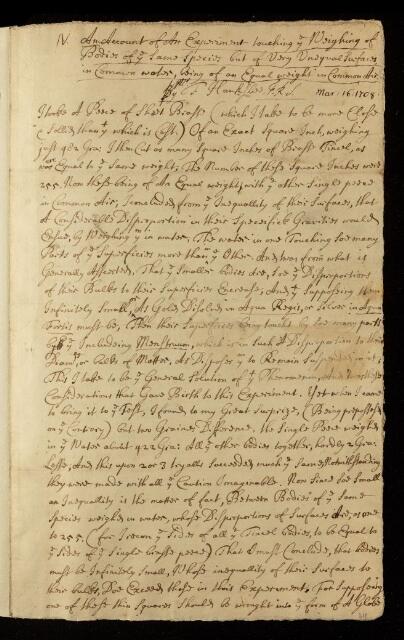 IV. An Account of An Experiment touching yͤ Weighing of
Bodies of yͤ Same Species but of Very Unequal Surfaces
in Common water, being of an Equal weight in Common Air.
By Fr Hauksbee F.R.S. Mar. 16. 1708
I took A Peece of Sheet Brass (which I take to be more Close
than yͭ which is Cast) Of an Exact Square Inch, weighing
just 482 Gra: I then Cut as many Square Inches of Brass Tinsel, as
was Equal to yͤ same weight; The Number of these Square Inches were
255. Now these being of An Equal weight with yͤ other Single peece
in Common Air, I concluded from yͤ Inequallity of their Surfaces, that
A Considerable Disproportion in their Specifick Gravities would
Ensue, by Weighing yͫ in water; The water in one Touching soe many
Parts of yͤ Superficies more than yͤ Other. And was from what is
Generally Asserted, That yͤ Smaller bodies are, soe yͤ Disproportions
of their Bulks to their Superficies Encrease, And yͭ Supposing them
Infinitely Small, As Gold Disolved in Aqua Regis, or Silver in Aqua
Fortis must be, Then their Superficies being toucht by soe many parts
of yͤ Including Menstruum, which is in such A Disproportion to their
or bulks of Matter, As Disposes yͫ to Remain Suspended in it;
This I take to be yͤ General Solution of yͭ Phenomenon, And
Considerations that Gave Birth to this Experiment. Yet when I came
to bring it to yͤ Test, I found, to my Great Surprize, (Being prepossest
on yͤ Contrary) but two Graines Difference. the Single Peece weighed
in yͤ Water about 422 Gra: All yͤ other bodies together, hardly 2 Gra:
Lesse, And this upon 2 or 3 tryalls Succeeded much yͤ Same, Notwithstanding
they were made with all yͤ Caution Imaginable. Now Since soe Small
an Inequallity is the matter of fact, Between Bodies of yͤ Same
Species weighed in water, whose Disproportions of Surfaces are, as one
to 255. (for I reckon yͤ Sides of all yͤ Tinsel bodies, to be Equal to
yͤ Sides of yͤ Single Brasse peece) That I must Conclude, that bodies
must be Infinitely Small, if those inequality of their Surfaces to
their bulks, Doe Exceed those in this Experiment. For Supposing
one of these thin Squares Should be wrought into yͤ form of A Globe